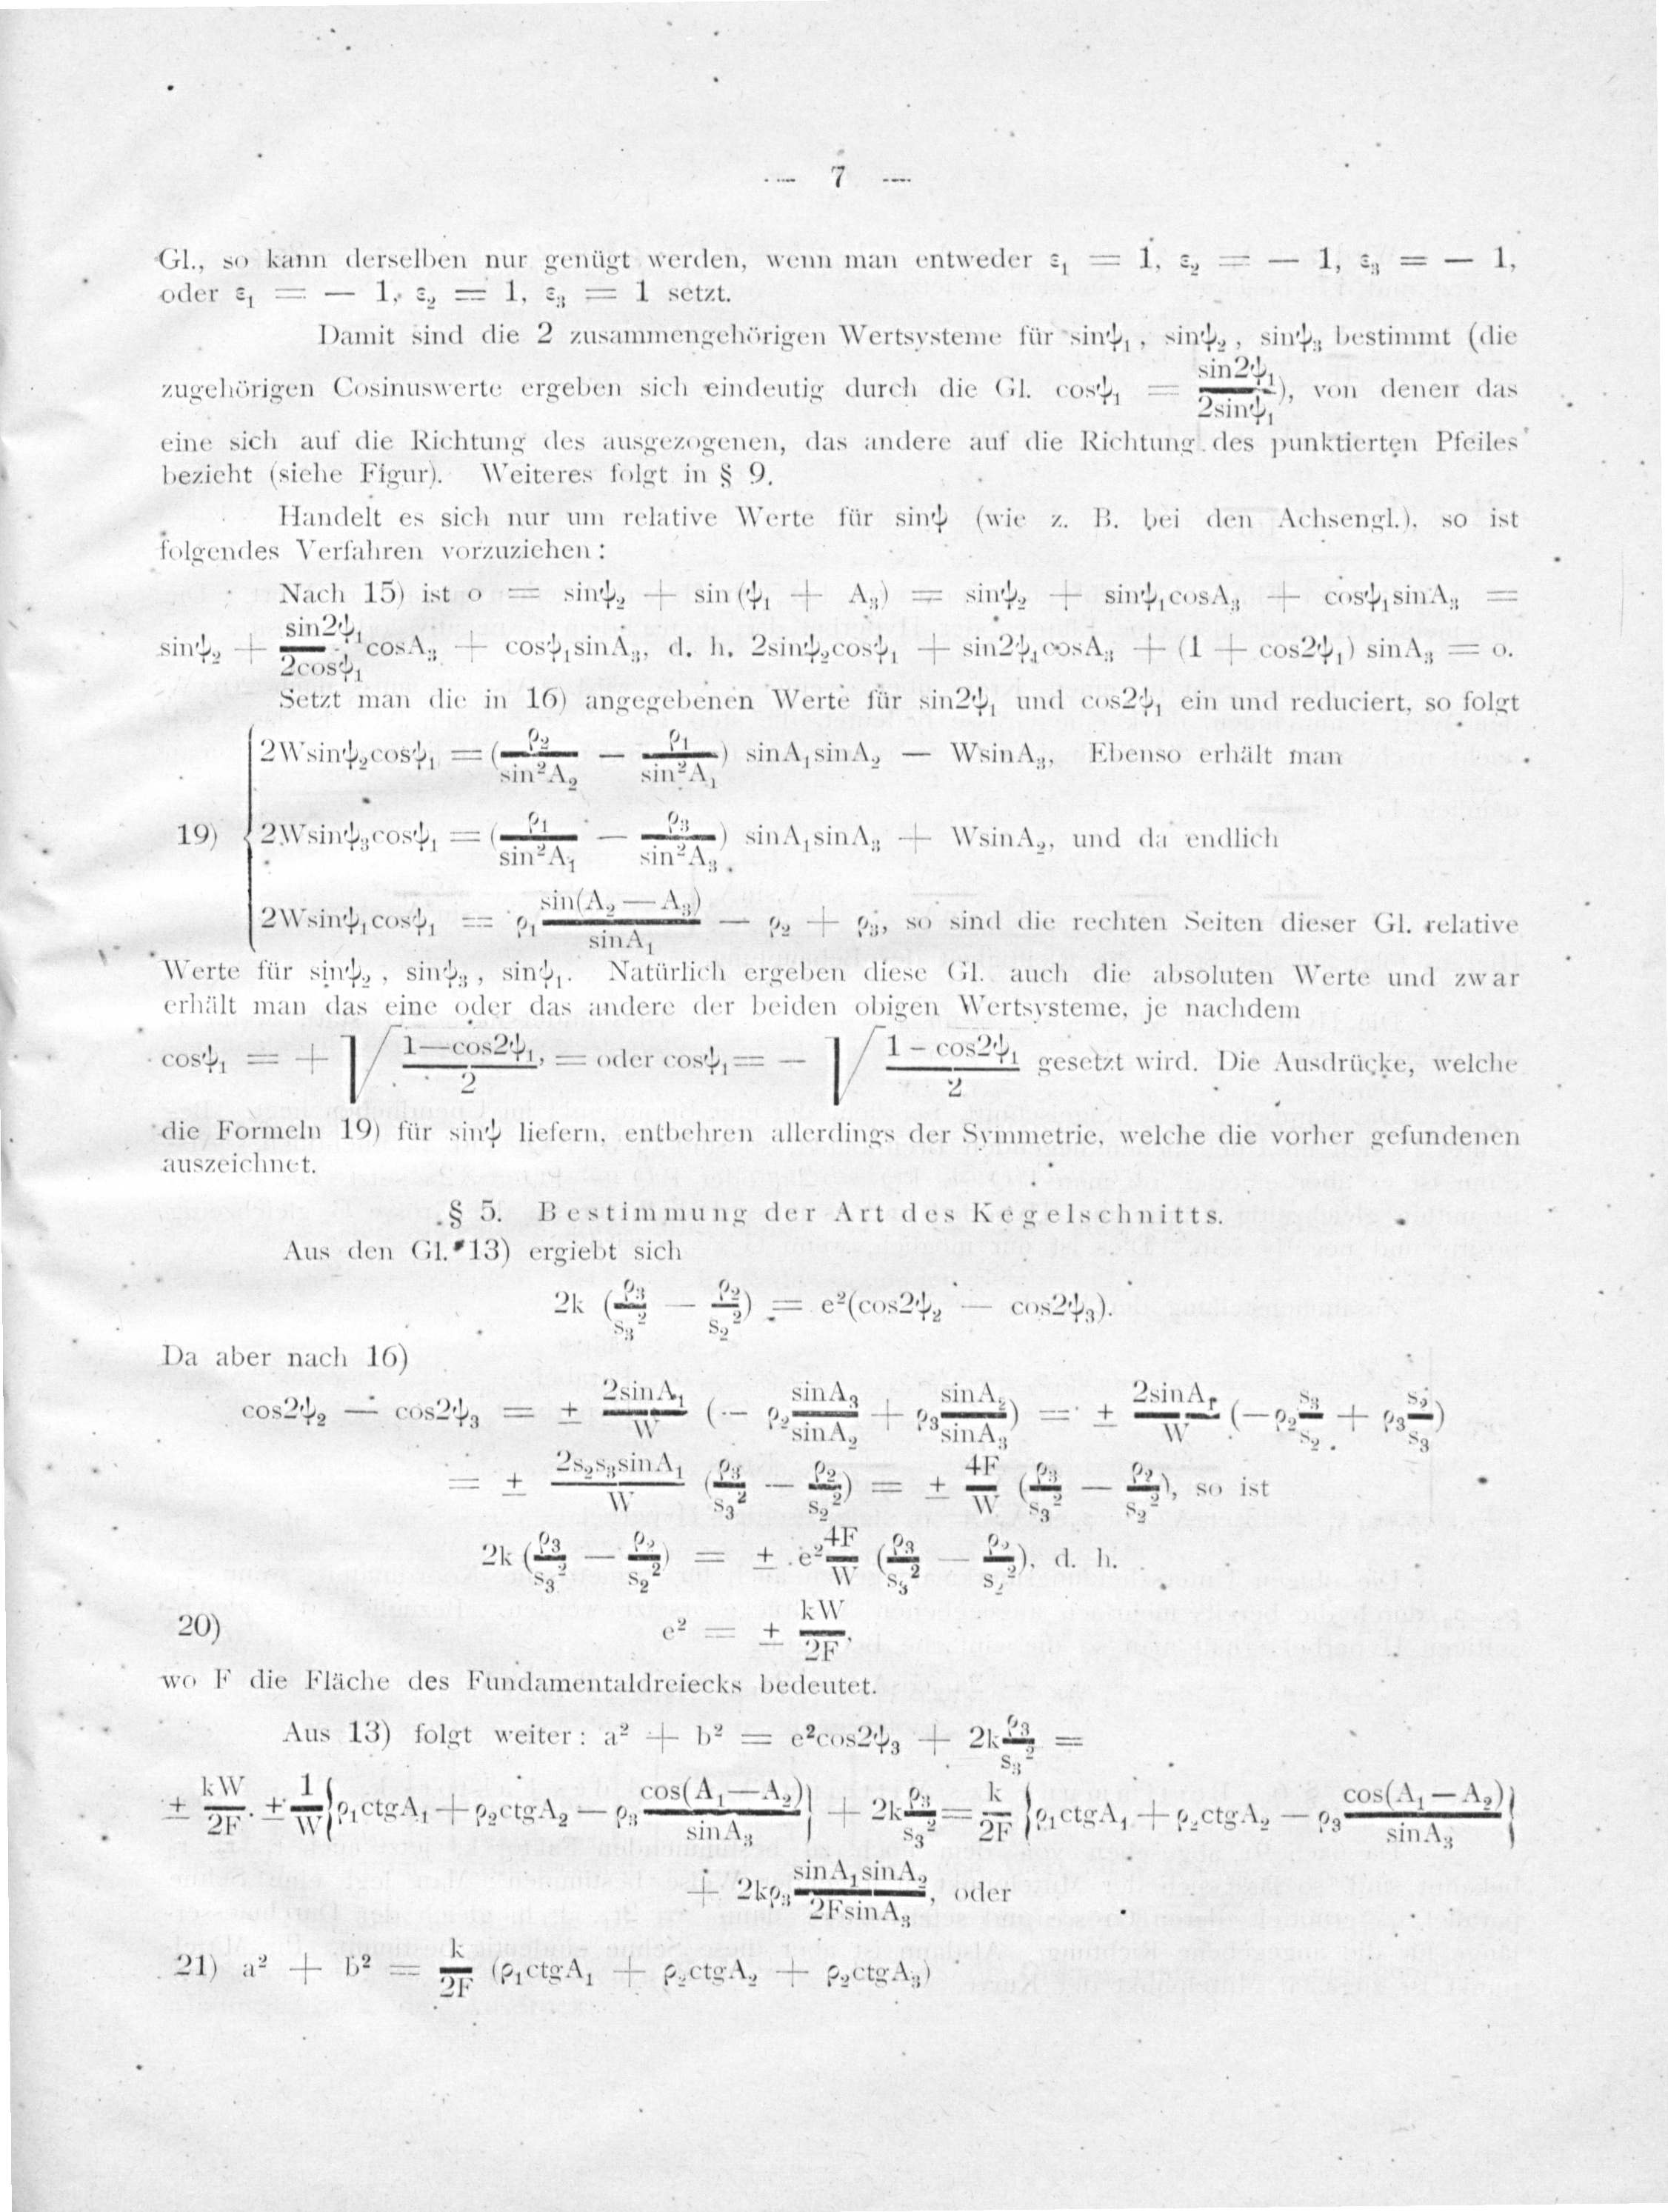 — 7 —
Gl., so kann derselben nur genügt werden, wenn man entweder ε₁ = 1, ε₂ = — 1, ε₃ = — 1,
oder ε₁ = — 1, ε₂ = 1, ε₃ = 1 setzt.
Damit sind die 2 zusammengehörigen Wertsysteme für sinψ₁, sinψ₂, sinψ₃ bestimmt (die
zugehörigen Cosinuswerte ergeben sich eindeutig durch die Gl. cosψ₁ = sin2ψ₁/2sinψ₁), von denen das
eine sich auf die Richtung des ausgezogenen, das andere auf die Richtung des punktierten Pfeiles
bezieht (siehe Figur). Weiteres folgt in § 9.
Handelt es sich nur um relative Werte für sinψ (wie z. B. bei den Achsengl.), so ist
folgendes Verfahren vorzuziehen:
Nach 15) ist o = sinψ₂ + sin (ψ₁ + A₃) = sinψ₂ + sinψ₁cosA₃ + cosψ₁sinA₃ =
sinψ₂ + sin2ψ₁/2cosψ₁ cosA₃ + cosψ₁sinA₃, d. h. 2sinψ₂cosψ₁ + sin2ψ₁cosA₃ + (1 + cos2ψ₁) sinA₃ = o.
Setzt man die in 16) angegebenen Werte für sin2ψ₁ und cos2ψ₁ ein und reduciert, so folgt
2Wsinψ₂cosψ₁ = (ρ₂/sin²A₂ — ρ₁/sin²A₁) sinA₁sinA₂ — WsinA₃, Ebenso erhält man
19) 2Wsinψ₃cosψ₁ = (ρ₁/sin²A₁ — ρ₃/sin²A₃) sinA₁sinA₃ + WsinA₂, und da endlich
2Wsinψ₁cosψ₁ = ρ₁ sin(A₂—A₃)/sinA₁ — ρ₂ + ρ₃, so sind die rechten Seiten dieser Gl. relative
Werte für sinψ₂, sinψ₃, sinψ₁. Natürlich ergeben diese Gl. auch die absoluten Werte und zwar
erhält man das eine oder das andere der beiden obigen Wertsysteme, je nachdem
cosψ₁ = + √(1—cos2ψ₁/2), = oder cosψ₁ = — √(1 – cos2ψ₁/2) gesetzt wird. Die Ausdrücke, welche
die Formeln 19) für sinψ liefern, entbehren allerdings der Symmetrie, welche die vorher gefundenen
auszeichnet.
§ 5. Bestimmung der Art des Kegelschnitts.
Aus den Gl. 13) ergiebt sich
2k (ρ₃/s₃² — ρ₂/s₂²) = e²(cos2ψ₂ — cos2ψ₃).
Da aber nach 16)
cos2ψ₂ — cos2ψ₃ = ± 2sinA₁/W (— ρ₂ sinA₃/sinA₂ + ρ₃ sinA₂/sinA₃) = ± 2sinA₁/W (—ρ₂ s₃/s₂ + ρ₃ s₂/s₃)
= ± 2s₂s₃sinA₁/W (ρ₃/s₃² — ρ₂/s₂²) = ± 4F/W (ρ₃/s₃² — ρ₂/s₂²), so ist
2k (ρ₃/s₃² — ρ₂/s₂²) = ± e² 4F/W (ρ₃/s₃² — ρ₂/s₂²), d. h.
20) e² = ± kW/2F,
wo F die Fläche des Fundamentaldreiecks bedeutet.
Aus 13) folgt weiter: a² + b² = e²cos2ψ₃ + 2k ρ₃/s₃² =
± kW/2F . ± 1/W {ρ₁ctgA₁ + ρ₂ctgA₂ — ρ₃ cos(A₁—A₂)/sinA₃} + 2k ρ₃/s₃² = k/2F {ρ₁ctgA₁ + ρ₂ctgA₂ — ρ₃ cos(A₁—A₂)/sinA₃}
+ 2kρ₃ sinA₁sinA₂/2FsinA₃, oder
21) a² + b² = k/2F (ρ₁ctgA₁ + ρ₂ctgA₂ + ρ₂ctgA₃)